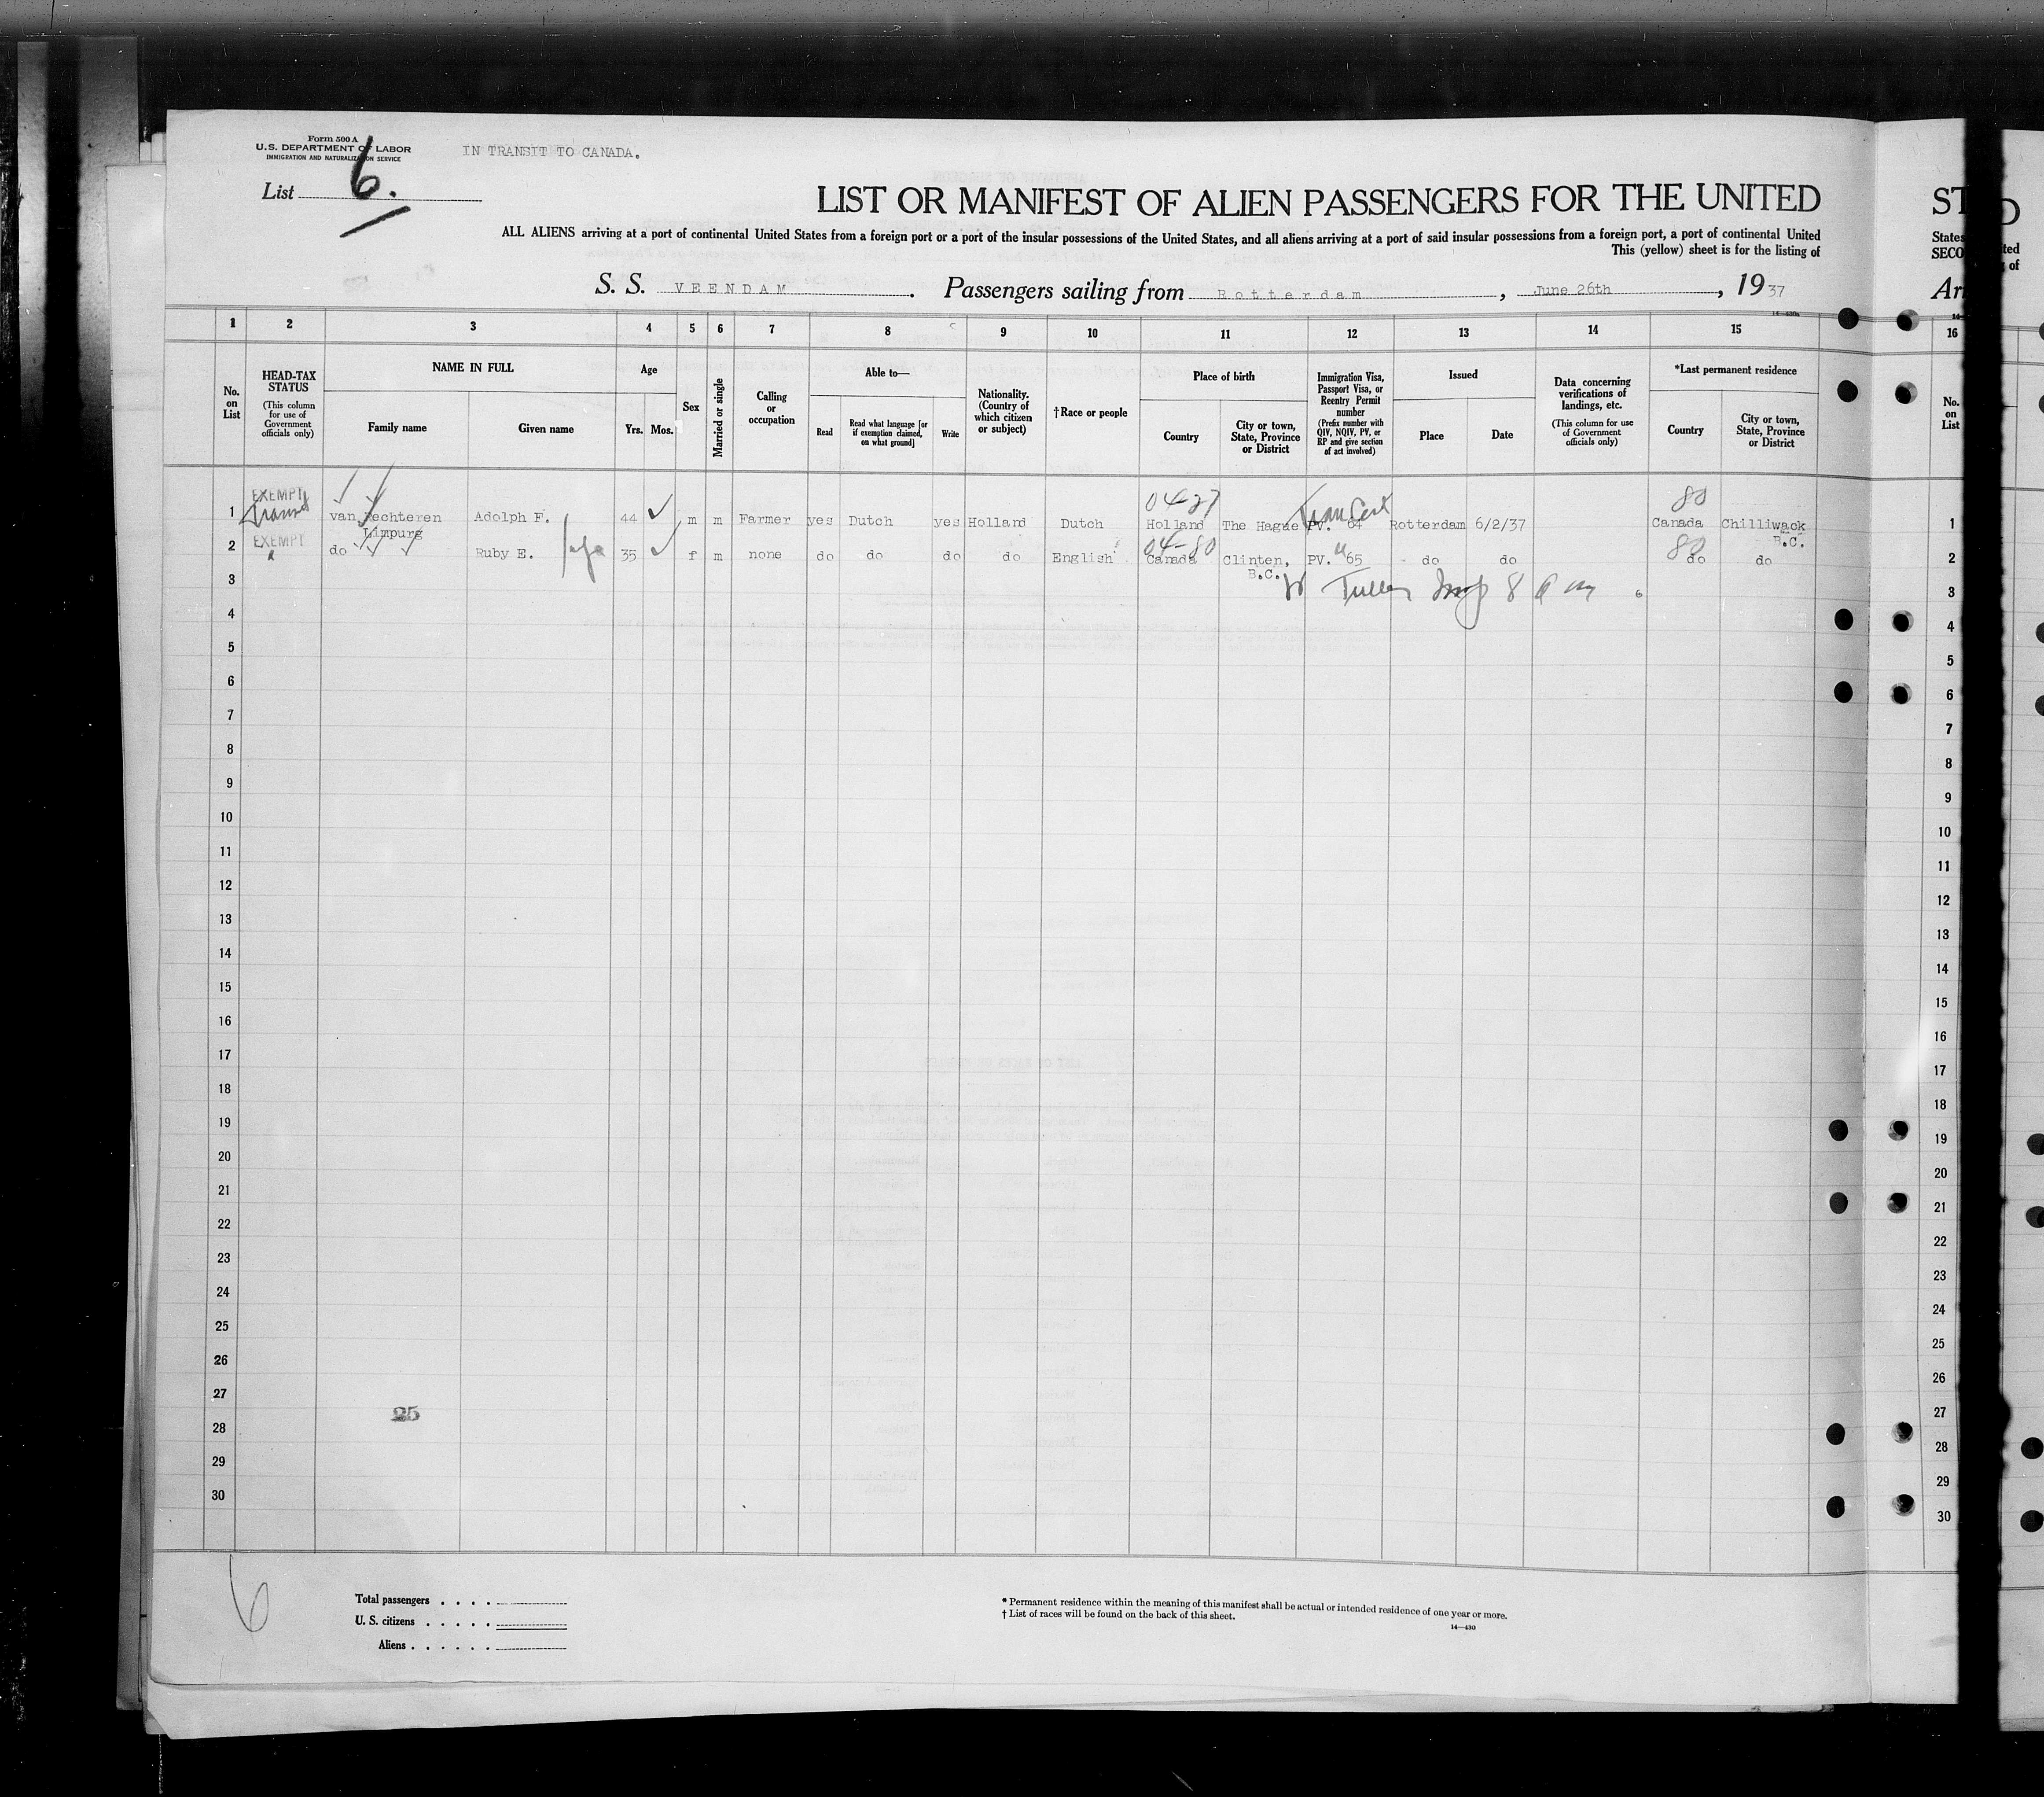 Form 500 A
U.S. DEPARTMENT OF LABOR
IMMIGRATION AND NATURALIZATION SERVICE
IN TRANSIT TO CANADA.
List 6.
LIST OR MANIFEST OF ALIEN PASSENGERS FOR THE UNITED
ALL ALIENS arriving at a port of continental United States from a foreign port or a port of the insular possessions of the United States, and all aliens arriving at a port of said insular possessions from a foreign port, a port of continental United
This (yellow) sheet is for the listing of
S. S. VEENDAM. Passengers sailing from Rotterdam, June 26th, 1937
ST
States
SECO
Ar
1 2 3 4 5 6 7 8 9 10 11 12 13 14 15 16
No. on List
HEAD-TAX STATUS
(This column for use of Government officials only)
NAME IN FULL
Family name Given name
Age
Yrs. Mos.
Sex
Married or single
Calling or occupation
Able to—
Read
Read what language [or if exemption claimed, on what ground]
Write
Nationality. (Country of which citizen or subject)
†Race or people
Place of birth
Country
City or town, State, Province or District
Immigration Visa, Passport Visa, or Reentry Permit number
(Prefix number with QIV, NQIV, PV, or RP and give section of act involved)
Issued
Place Date
Data concerning verifications of landings, etc.
(This column for use of Government officials only)
*Last permanent residence
Country
City or town, State, Province or District
No. on List
EXEMPT 04-27 80
1 Transit van Rechteren Adolph F. 44 m m Farmer yes Dutch yes Holland Dutch Holland The Hague PV. 64 Rotterdam 6/2/37 Canada Chilliwack 1
Limpurg B.C.
EXEMPT 04-80 80
2 do Ruby E. 35 f m none do do do do English Canada Clinten, PV. 65 do do do do 2
B.C.
3 3
4 4
5 5
6 6
7 7
8 8
9 9
10 10
11 11
12 12
13 13
14 14
15 15
16 16
17 17
18 18
19 19
20 20
21 21
22 22
23 23
24 24
25 25
26 26
27 27
25
28 28
29 29
30 30
6
Total passengers
U. S. citizens
Aliens
* Permanent residence within the meaning of this manifest shall be actual or intended residence of one year or more.
† List of races will be found on the back of this sheet.
14—430